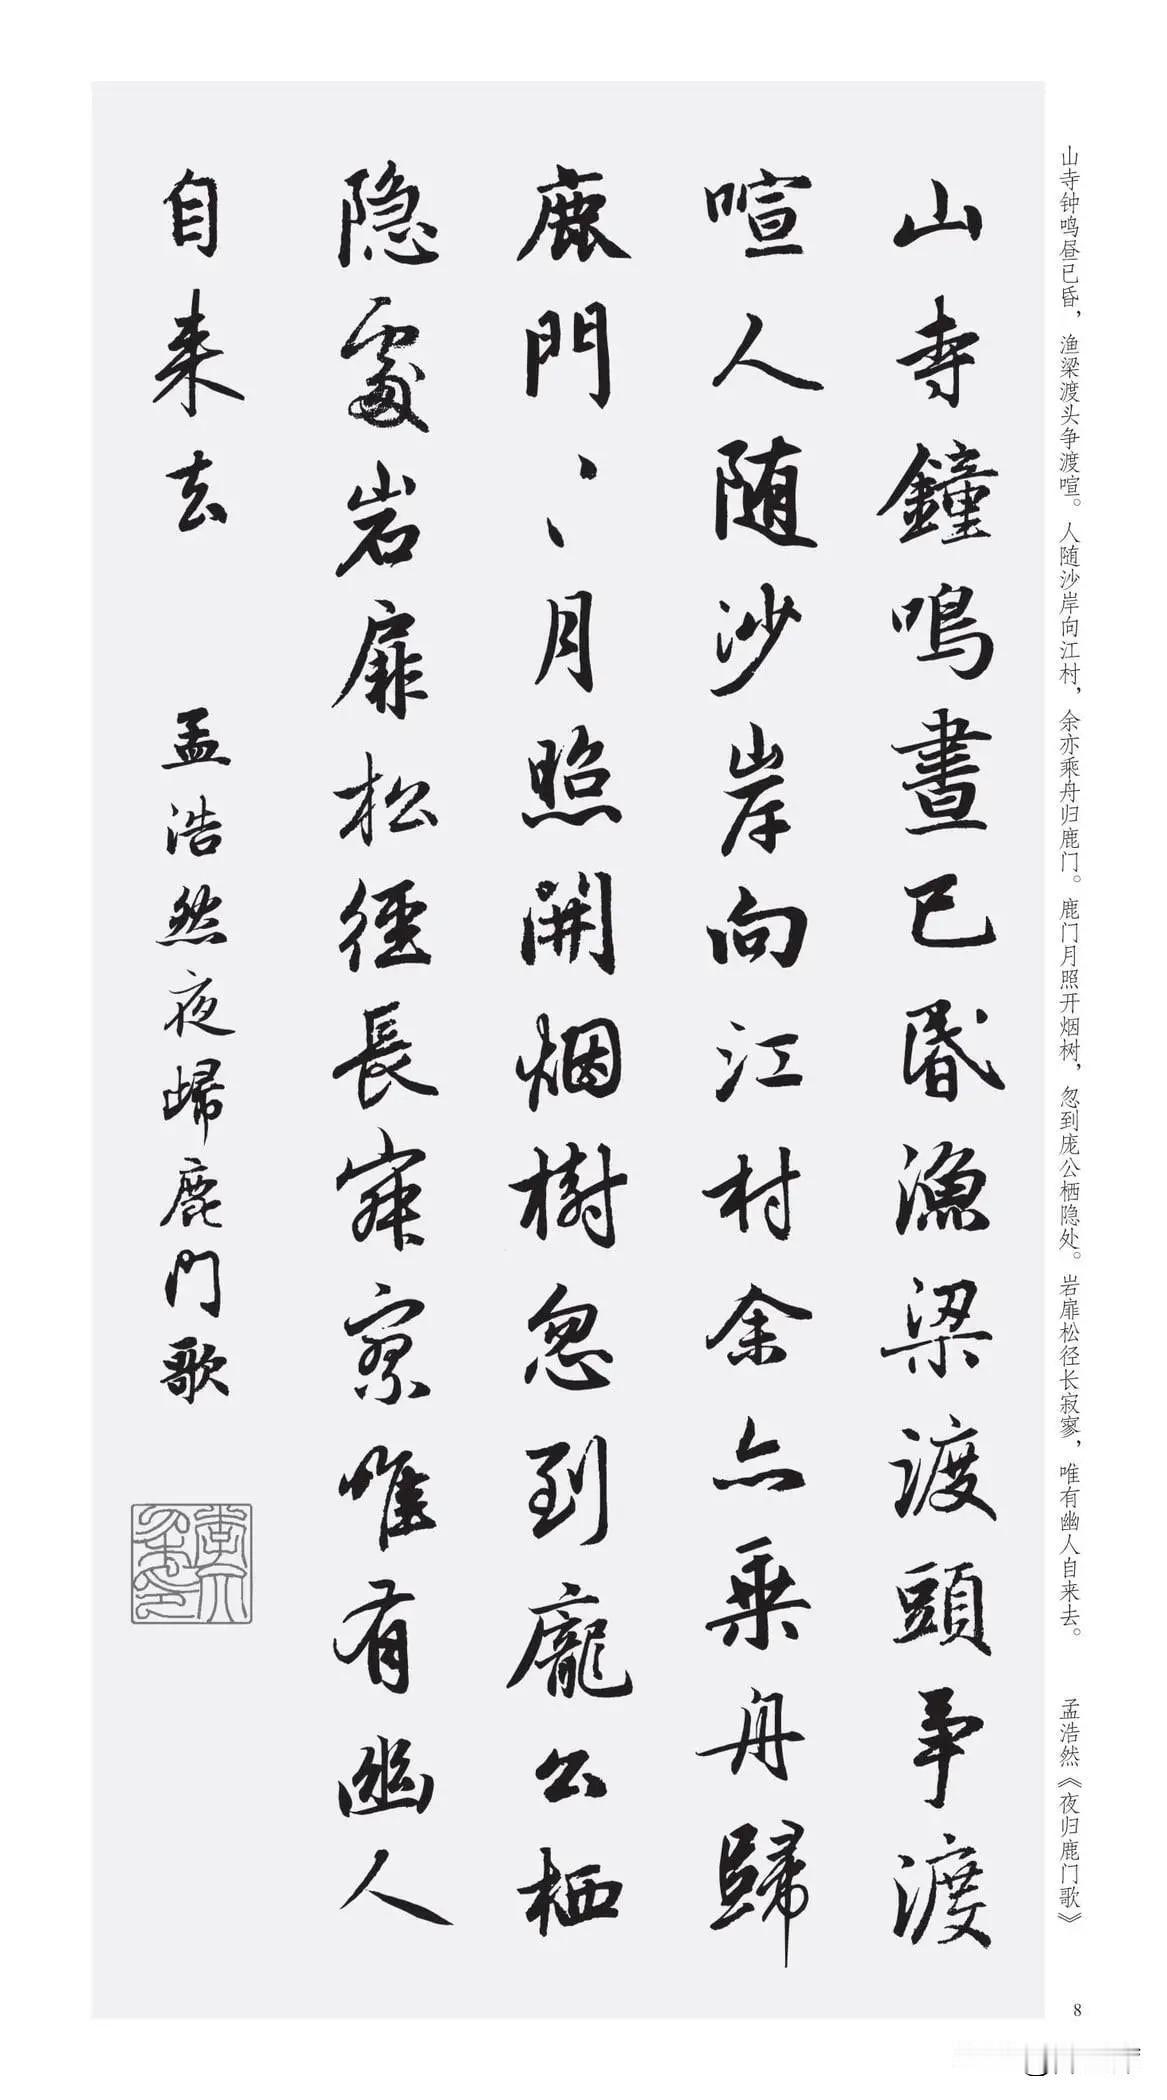 山寺钟鸣昼已昏，渔梁渡头争渡喧。人随沙岸向江村，余亦乘舟归鹿门。鹿门月照开烟树，忽到庞公栖隐处。岩扉松径长寂寥，唯有幽人自来去。 孟浩然《夜归鹿门歌》
山寺鐘鳴晝已昬漁梁渡頭争渡
喧人随沙岸向江村余亦乘舟歸
鹿門、、月照開烟樹忽到龐公栖
隐處岩扉松徑長寂寥唯有幽人
自来去 孟浩然夜歸鹿門歌
8